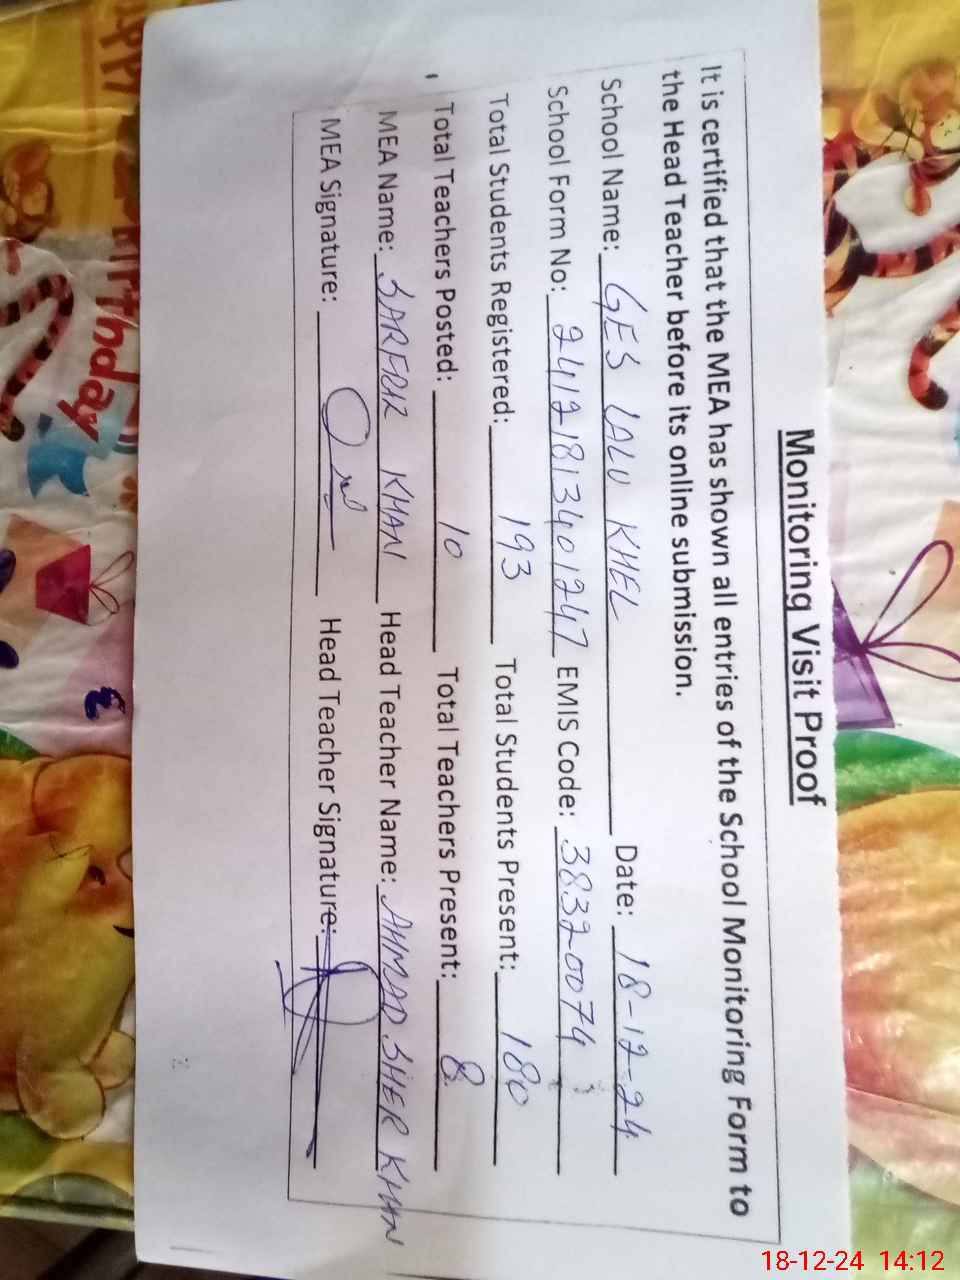 Monitoring Visit Proof
It is certified that the MEA has shown all entries of the School Monitoring Form to
the Head Teacher before its online submission.
School Name: GES LALU KHEL Date: 18-12-24
School Form No: 24121813401247 EMIS Code: 38320074
Total Students Registered: 193 Total Students Present: 180
Total Teachers Posted: 10 Total Teachers Present: 8
MEA Name: SARFRAZ KHAN Head Teacher Name: AHMAD SHER KHAN
MEA Signature: Head Teacher Signature:
Birthday
18-12-24 14:12